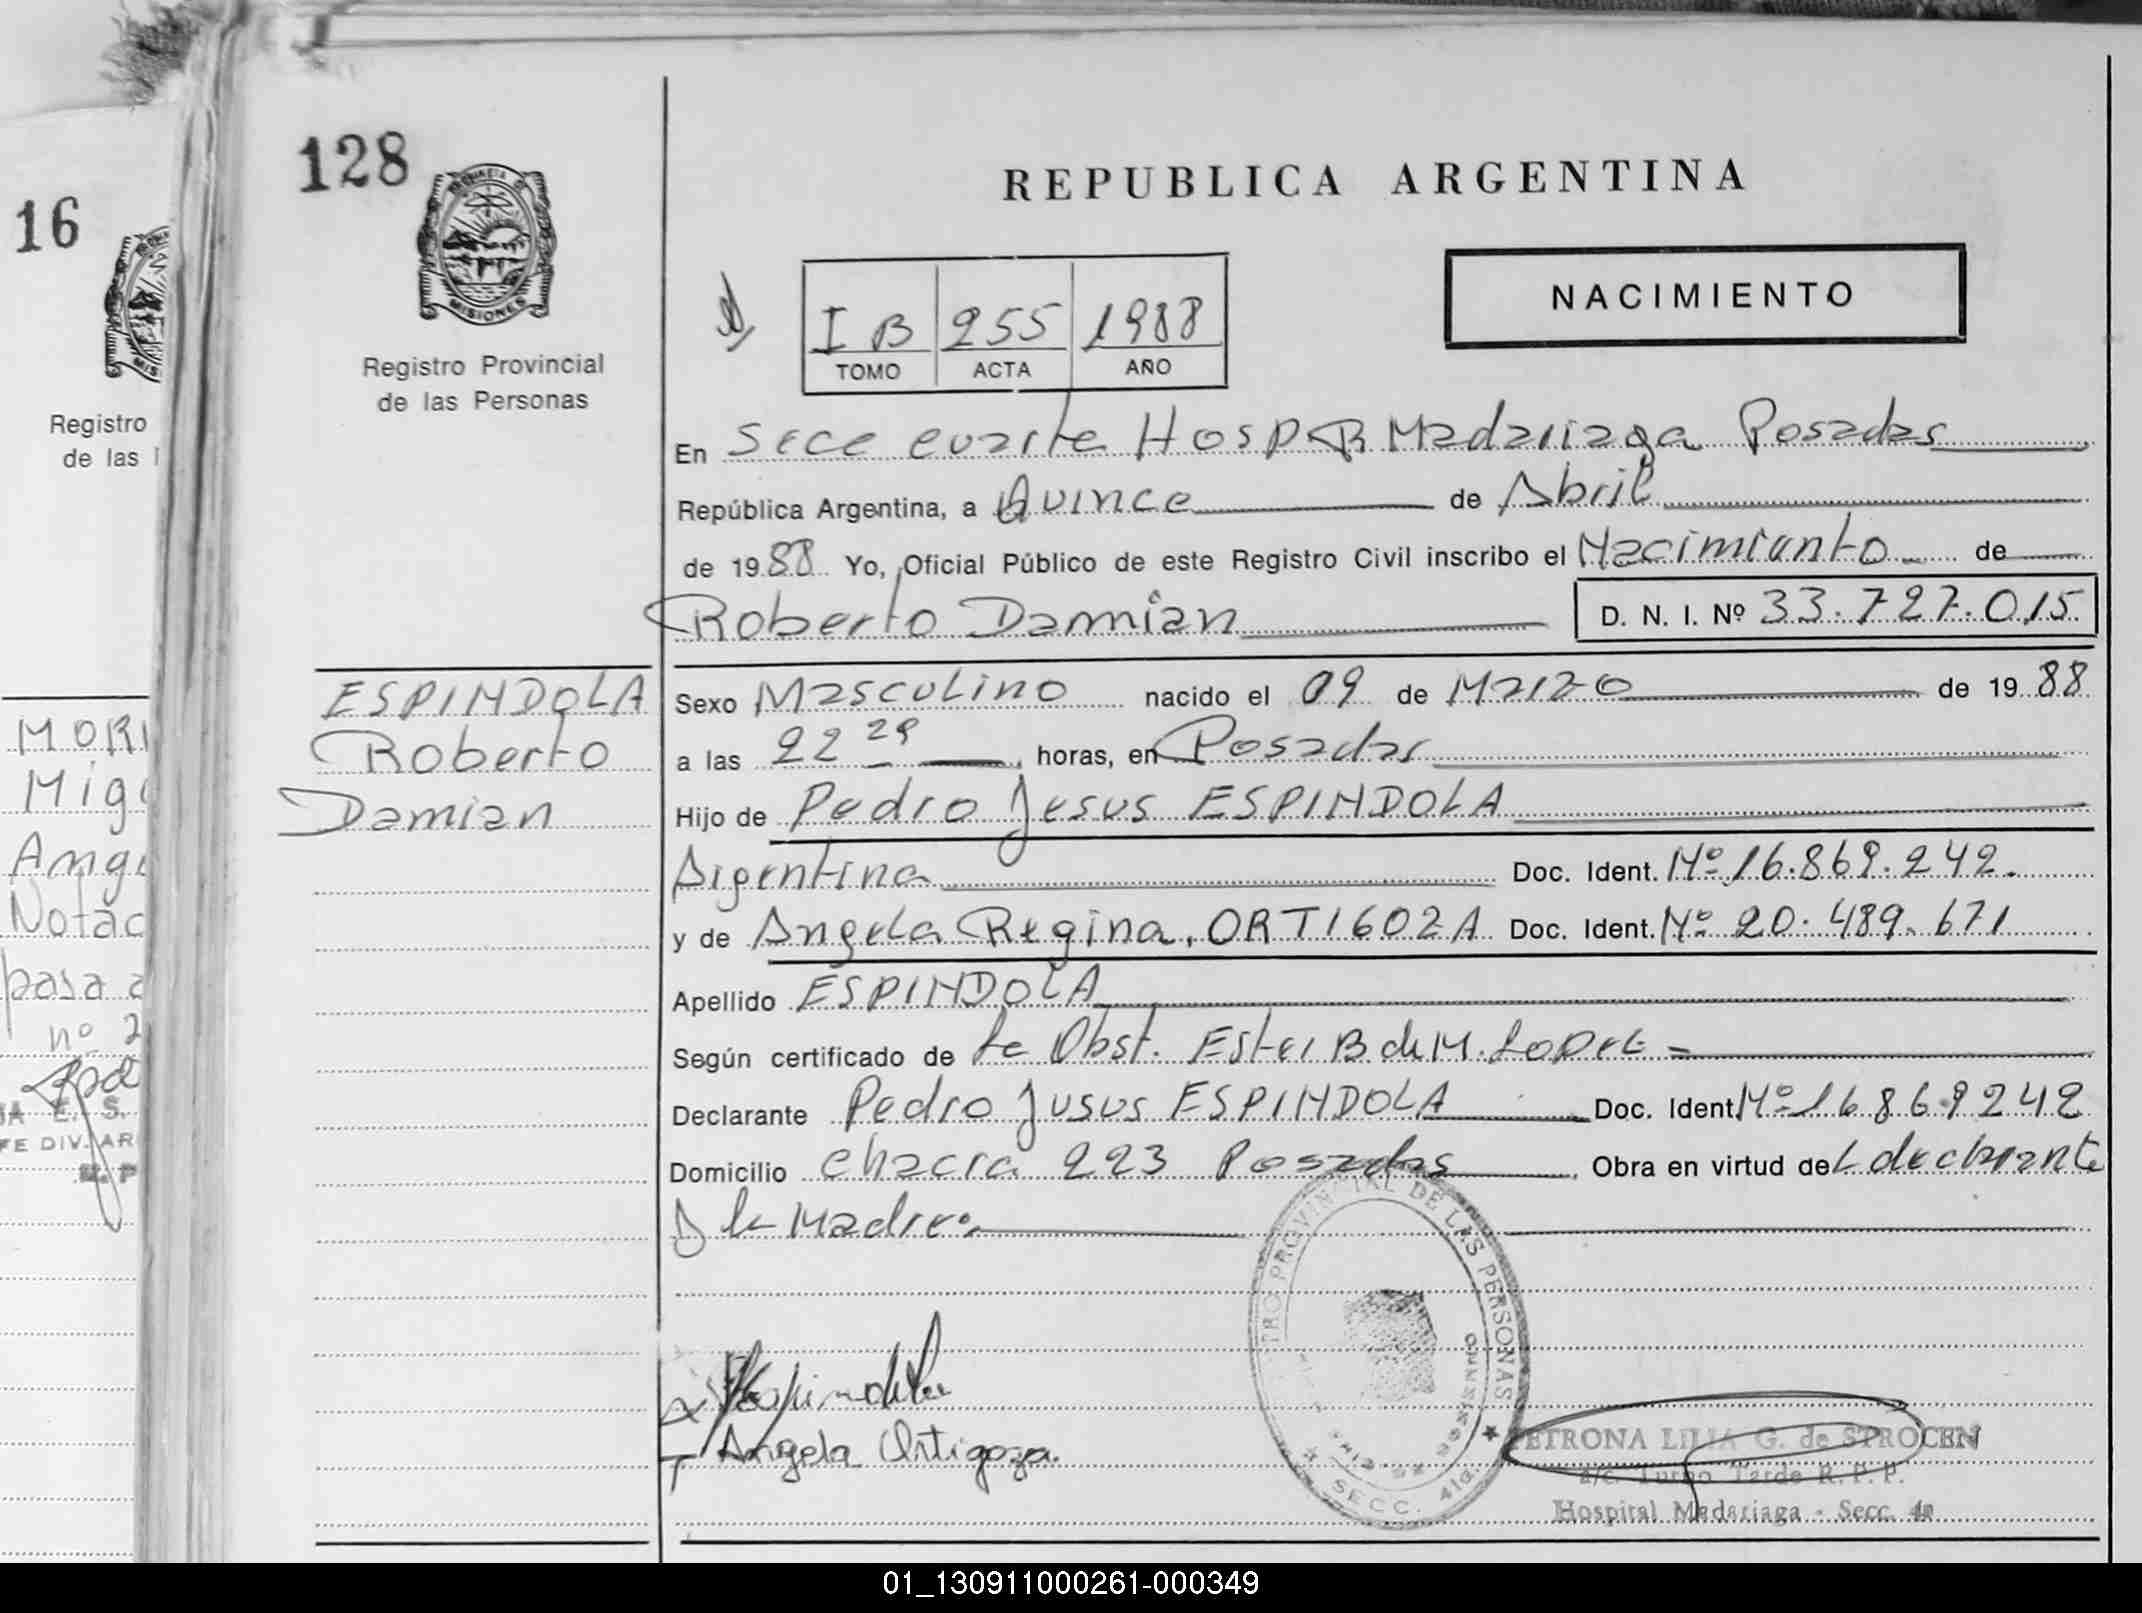 128
16
PROVINCIA DE
MISIONES
Registro Provincial
de las Personas
Registro
de las
REPUBLICA ARGENTINA
NACIMIENTO
I B 255 1988
TOMO ACTA AÑO
En Secc cuarta Hosp R Madariaga Posadas
República Argentina, a Quince de Abril
de 1988 Yo, Oficial Público de este Registro Civil inscribo el Nacimianto de
Roberto Damian D. N. I. Nº 33.727.015
ESPINDOLA
Roberto
Damian
Sexo Masculino nacido el 09 de Marzo de 1988
a las 22 29 horas, en Posadas
Hijo de Pedro Jesus ESPINDOLA
Argentina Doc. Ident. Nº 16.869.242.
y de Angela Regina, ORTIGOZA Doc. Ident. Nº 20.489.671
Apellido ESPINDOLA
Según certificado de La Obst. Ester B de M. Lopez
Declarante Pedro Jusus ESPINDOLA Doc. Ident Nº 16869242
Domicilio chacra 223 Posadas, Obra en virtud de L declarante
y la Madre
MORI
Mig
Ang
Notac
pasa a
nº 2
E. S.
FE DIV. AR
Espindola
Angela Ortigoza.
PROVINCIAL DE LAS PERSONAS
SECC. 4ta.
PETRONA LILIA G. de STROCEN
a/c. Turno Tarde R. P. P.
Hospital Madariaga - Secc. 4a
01_130911000261-000349